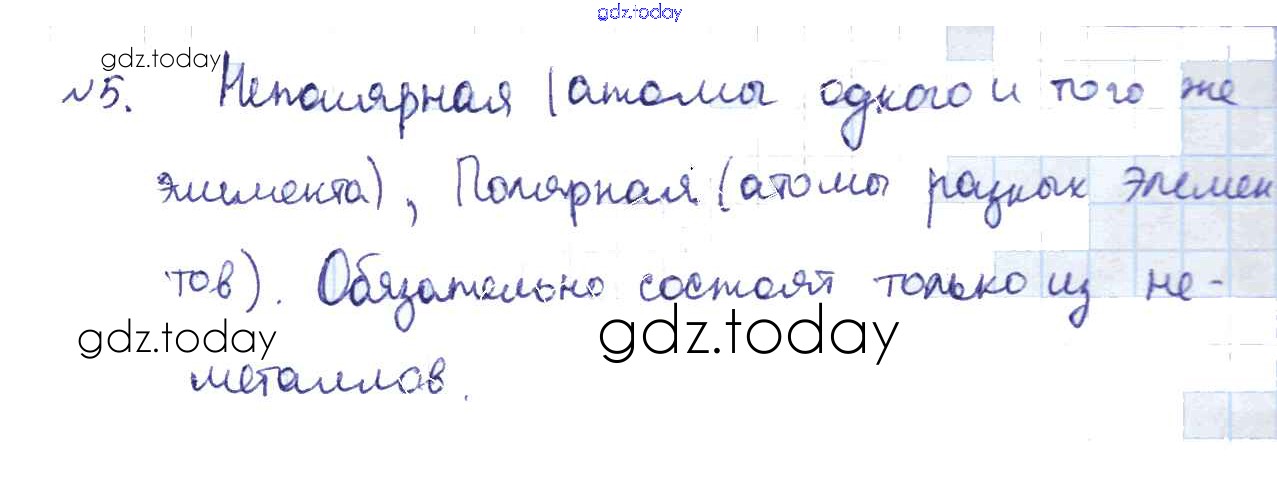 gdz.today
gdz.today
№5. Неполярная (атомы одного и того же
элемента), Полярная (атомы разных элемен
тов). Обязательно состоят только из не-
gdz.today gdz.today
металлов.